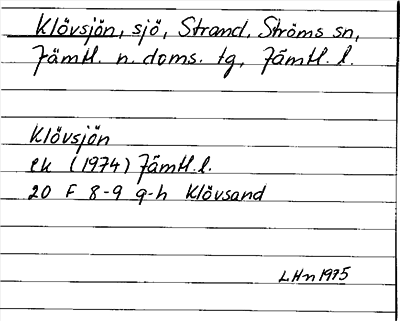 Klövsjön, sjö, Strand, Ströms sn,
Jämtl. n. doms. tg, Jämtl. l.
Klövsjön
ek (1974) Jämtl. l.
20 F 8-9 g-h Klövsand
LHn 1975